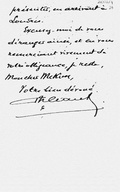 présentes, en arrivant à
Londres.
Excusez-moi de vous
déranger ainsi, et en vous
remerciant vivement de
votre obligeance, je reste,
Monsieur McKim,
Votre bien dévoué